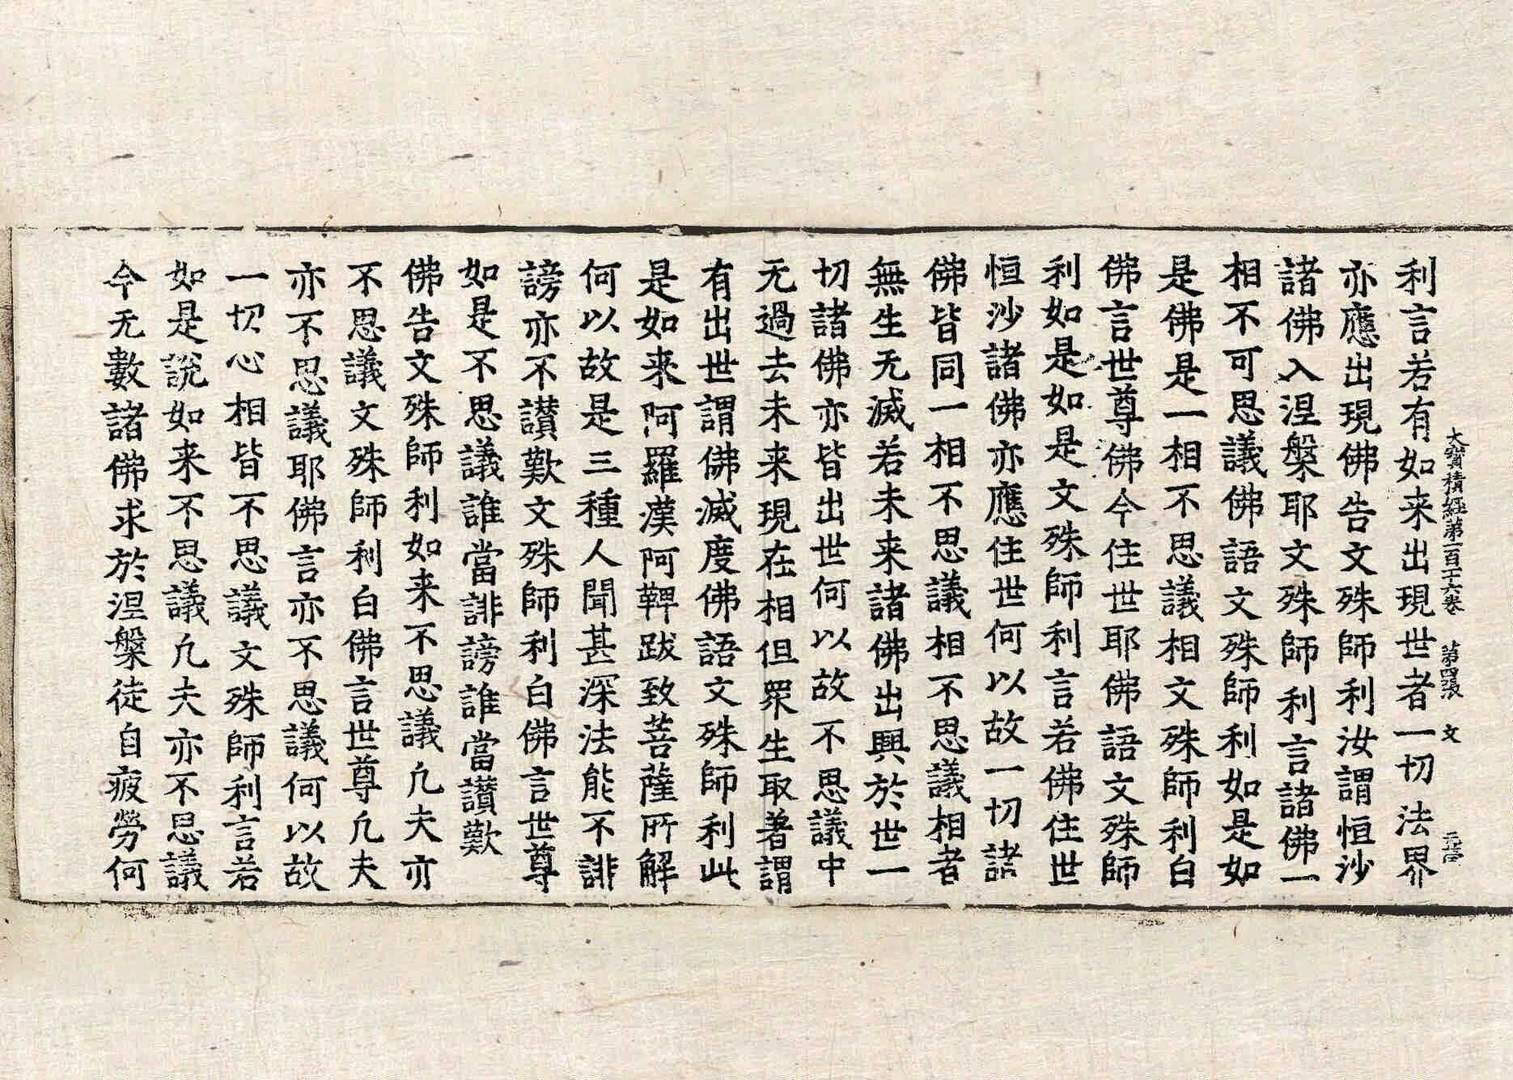 大寶積經第一百十六卷　第四張　文
利言若有如来出現世者一切法界
亦應出現佛告文殊師利汝謂恒沙
諸佛入涅槃耶文殊師利言諸佛一
相不可思議佛語文殊師利如是如
是佛是一相不思議相文殊師利白
佛言世尊佛今住世耶佛語文殊師
利如是如是文殊師利言若佛住世
恒沙諸佛亦應住世何以故一切諸
佛皆同一相不思議相不思議相者
無生无滅若未来諸佛出興於世一
切諸佛亦皆出世何以故不思議中
无過去未来現在相但衆生取著謂
有出世謂佛滅度佛語文殊師利此
是如来阿羅漢阿鞞跋致菩薩所解
何以故是三種人聞甚深法能不誹
謗亦不讃歎文殊師利白佛言世尊
如是不思議誰當誹謗誰當讃歎
佛告文殊師利如来不思議凢夫亦
不思議文殊師利白佛言世尊凢夫
亦不思議耶佛言亦不思議何以故
一切心相皆不思議文殊師利言若
如是說如来不思議凢夫亦不思議
今无數諸佛求於涅槃徒自疲勞何